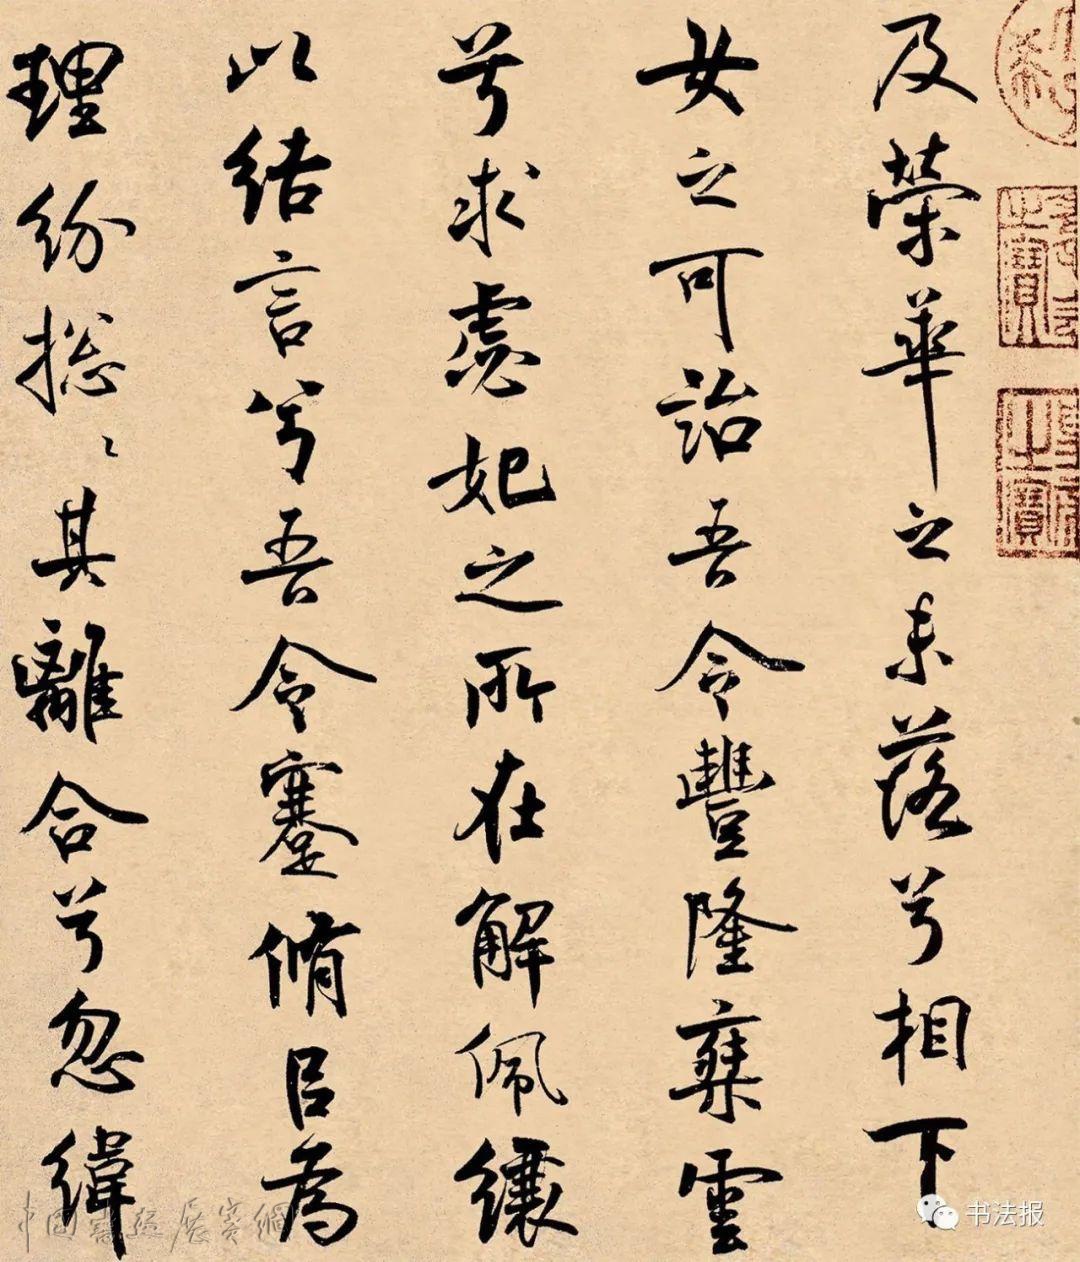 及榮華之未落兮相下
女之可詒吾令豐隆椉雲
兮求虙妃之所在解佩纕
以結言兮吾令蹇脩㠯為
理紛揔〻其離合兮忽緯
中國書法展賽網
书法报